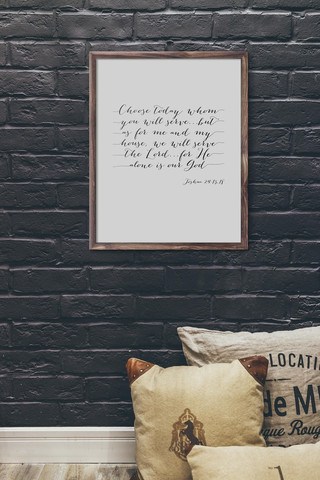 Choose today, whom
you will serve...but
as for me and my
house, we will serve
the Lord...for He
alone is our God
Joshua 24:15,18
LOCATI
de M
que Roug